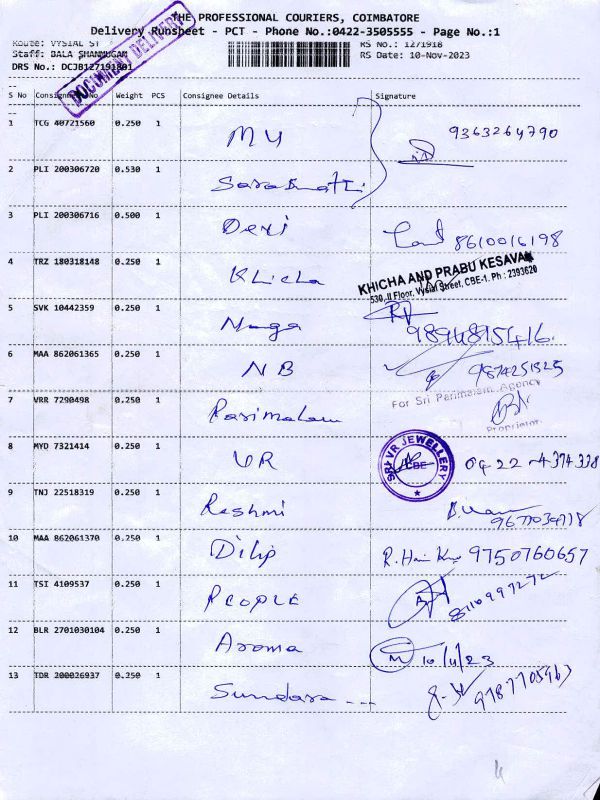 THE PROFESSIONAL COURIERS, COIMBATORE
Delivery Runsheet - PCT - Phone No.:0422-3505555 - Page No.:1
Route: VYSIAL ST RS No.: 1271918
Staff: BALA SHANMUGAM RS Date: 10-Nov-2023
DRS No.: DCJB127191801
DOCUMENT DELIVERY
S No Consignment No Weight PCS Consignee Details Signature
1 TCG 40721560 0.250 1 MY 9363264790
2 PLI 200306720 0.530 1 Saraswathi
3 PLI 200306716 0.500 1 Devi 8610016198
4 TRZ 180318148 0.250 1 Khicha
KHICHA AND PRABU KESAVAN
530, II Floor, Vysial Street, CBE-1. Ph : 2393620
5 SVK 10442359 0.250 1 Naga 9894895416.
6 MAA 862061365 0.250 1 NB 9874251525
7 VRR 7290498 0.250 1 Parimalam
For Sri Parimalam Agency
Proprietor
8 MYD 7321414 0.250 1 VR 0422-4374338
SRI VR JEWELLERY
CBE
9 TNJ 22518319 0.250 1 Reshmi
10 MAA 862061370 0.250 1 Dilip 9750760657
11 TSI 4109537 0.250 1 PEOPLE 8110997272
12 BLR 2701030104 0.250 1 Aroma 10/11/23
13 TDR 200026937 0.250 1 Sundara --- 9787705963